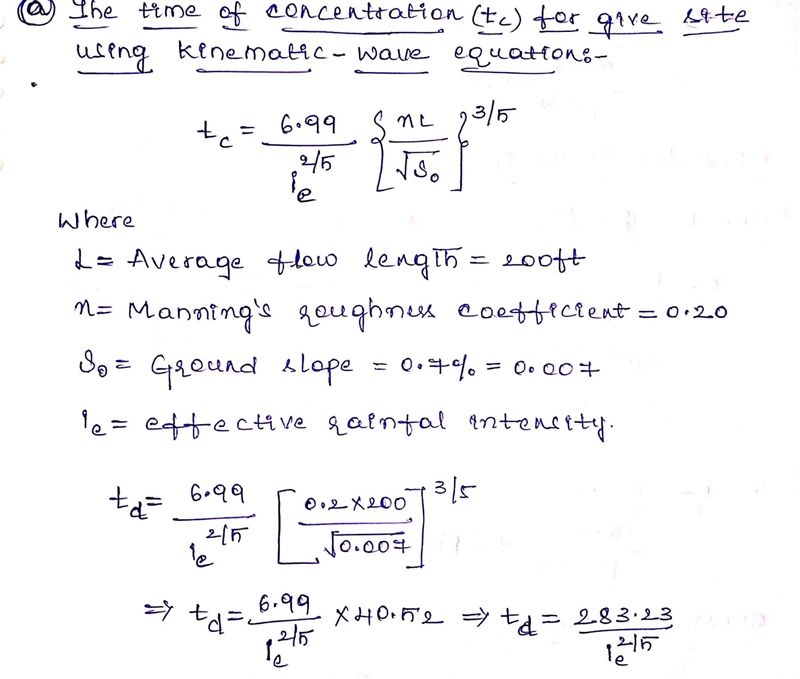 (a) The time of concentration (tc) for give site
using kinematic-wave equation:-
tc = 6.99 / ie^2/5 { nL / √S₀ }^3/5
Where
L = Average flow length = 200ft
n = Manning's roughness coefficient = 0.20
S₀ = Ground slope = 0.7% = 0.007
ie = effective rainfal intensity.
td = 6.99 / ie^2/5 [ 0.2×200 / √0.007 ]^3/5
⇒ td = 6.99 / ie^2/5 × 40.52 ⇒ td = 283.23 / ie^2/5